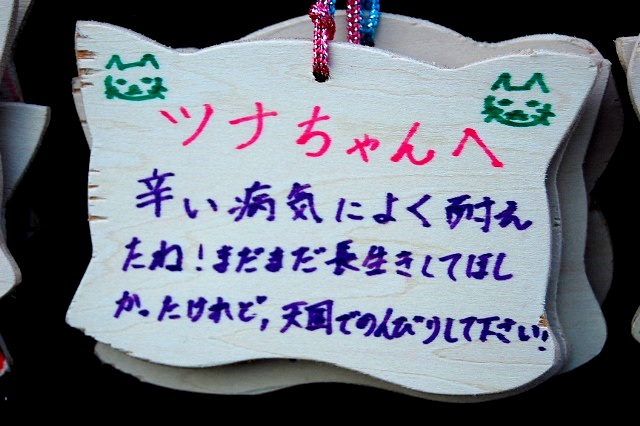 ツナちゃんへ
辛い病気によく耐え
たね!まだまだ長生きしてほし
かったけれど,天国でのんびりして下さい!